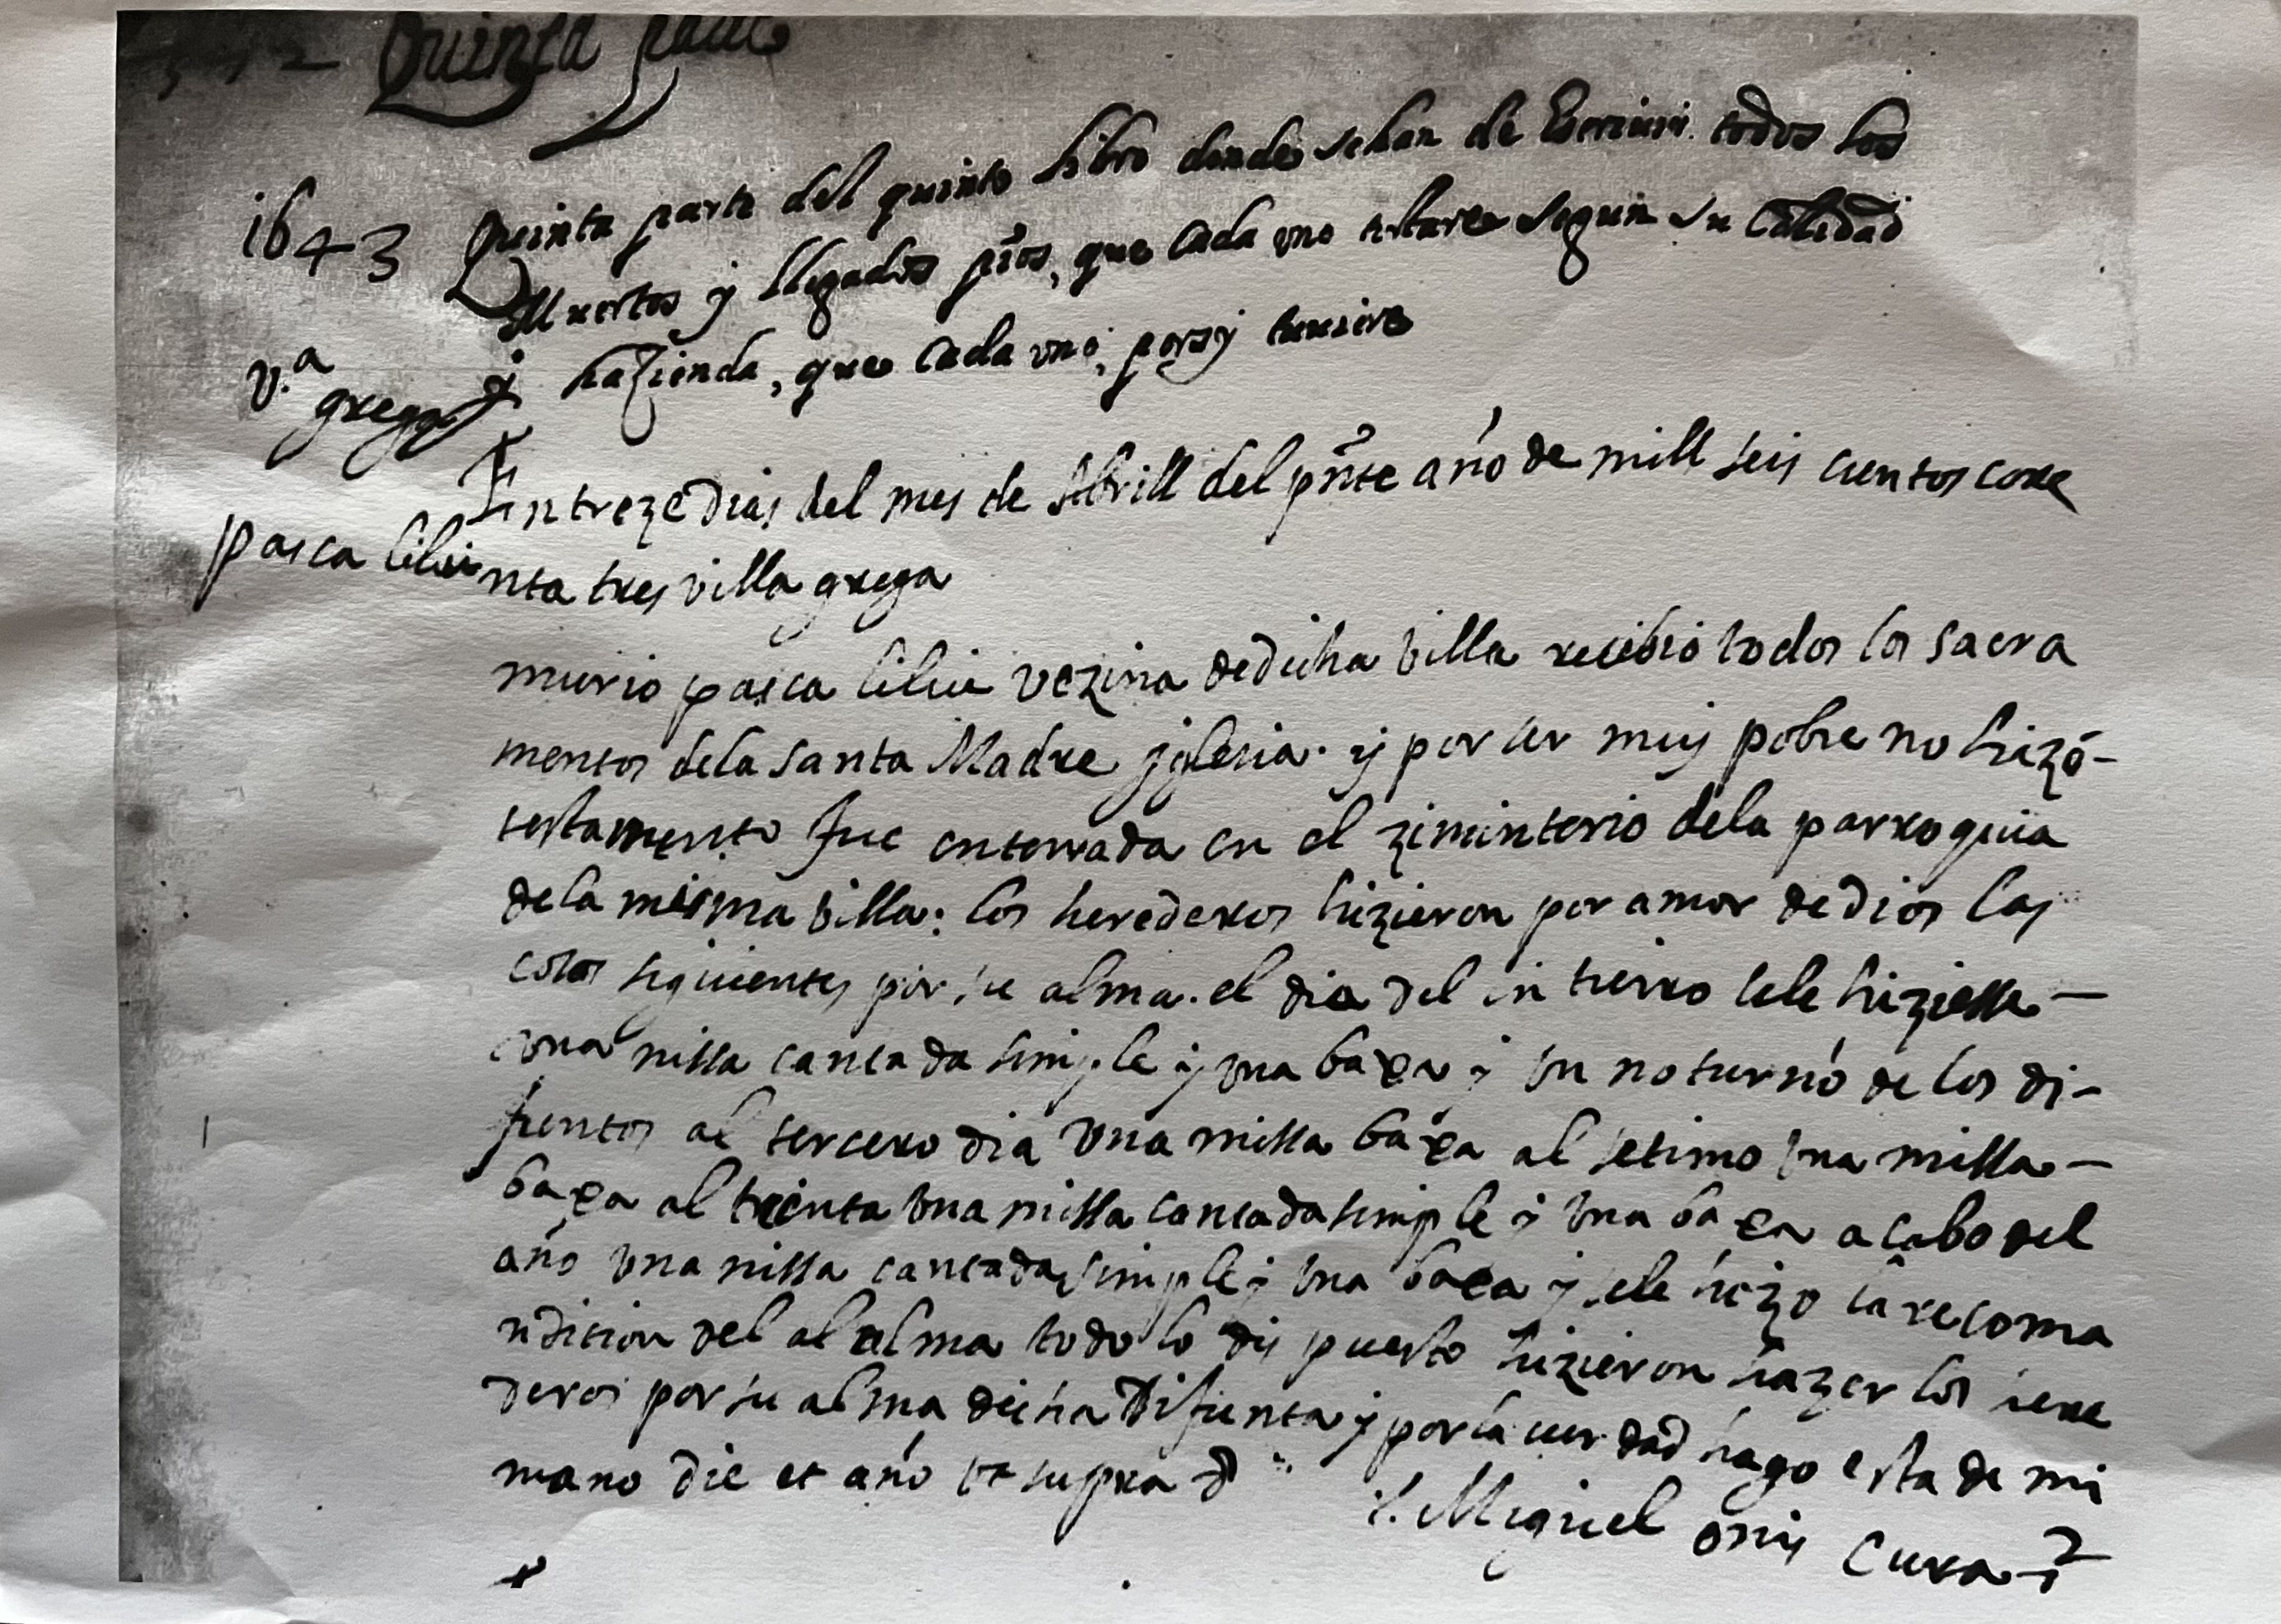 Quinta parte
1643 Quinta parte del quinto libro donde sehan de Escriuir todos los
Muertos y llegados pios, que cada vno testare segun su Calidad
v.ª grega y hazienda, que cada vno, porsy tuuiere
En treze dias del mes de Abrill del pñte año de mill seis cientos coxe
pasca lilui nta tres villa grega
murio pasca lilui vezina de dicha villa recibio todos los sacra
mentos dela santa Madre yglesia. y por ser muy pobre no hizo-
testamento fue enterrada en el ziminterio dela parroquia
dela misma villa: los herederos hizieron por amor de Dios las
cosas siguientes por su alma. el dia del intierro sele hiziesse —
vna missa cantada simple y vna baxa y vn noturno de los di-
funtos al tercero dia vna missa baxa al setimo vna missa —
baxa al trienta vna missa cantada simple y vna baxa a cabo del
año vna missa cantada simple y vna baxa y sele hizo la recoma
ndicion del al alma todo lo dispuesto hizieron hazer los here
deros por su alma dicha Difunta y por la uerdad hago esta de mi
mano die et año vt supra
Miguel onis Cura